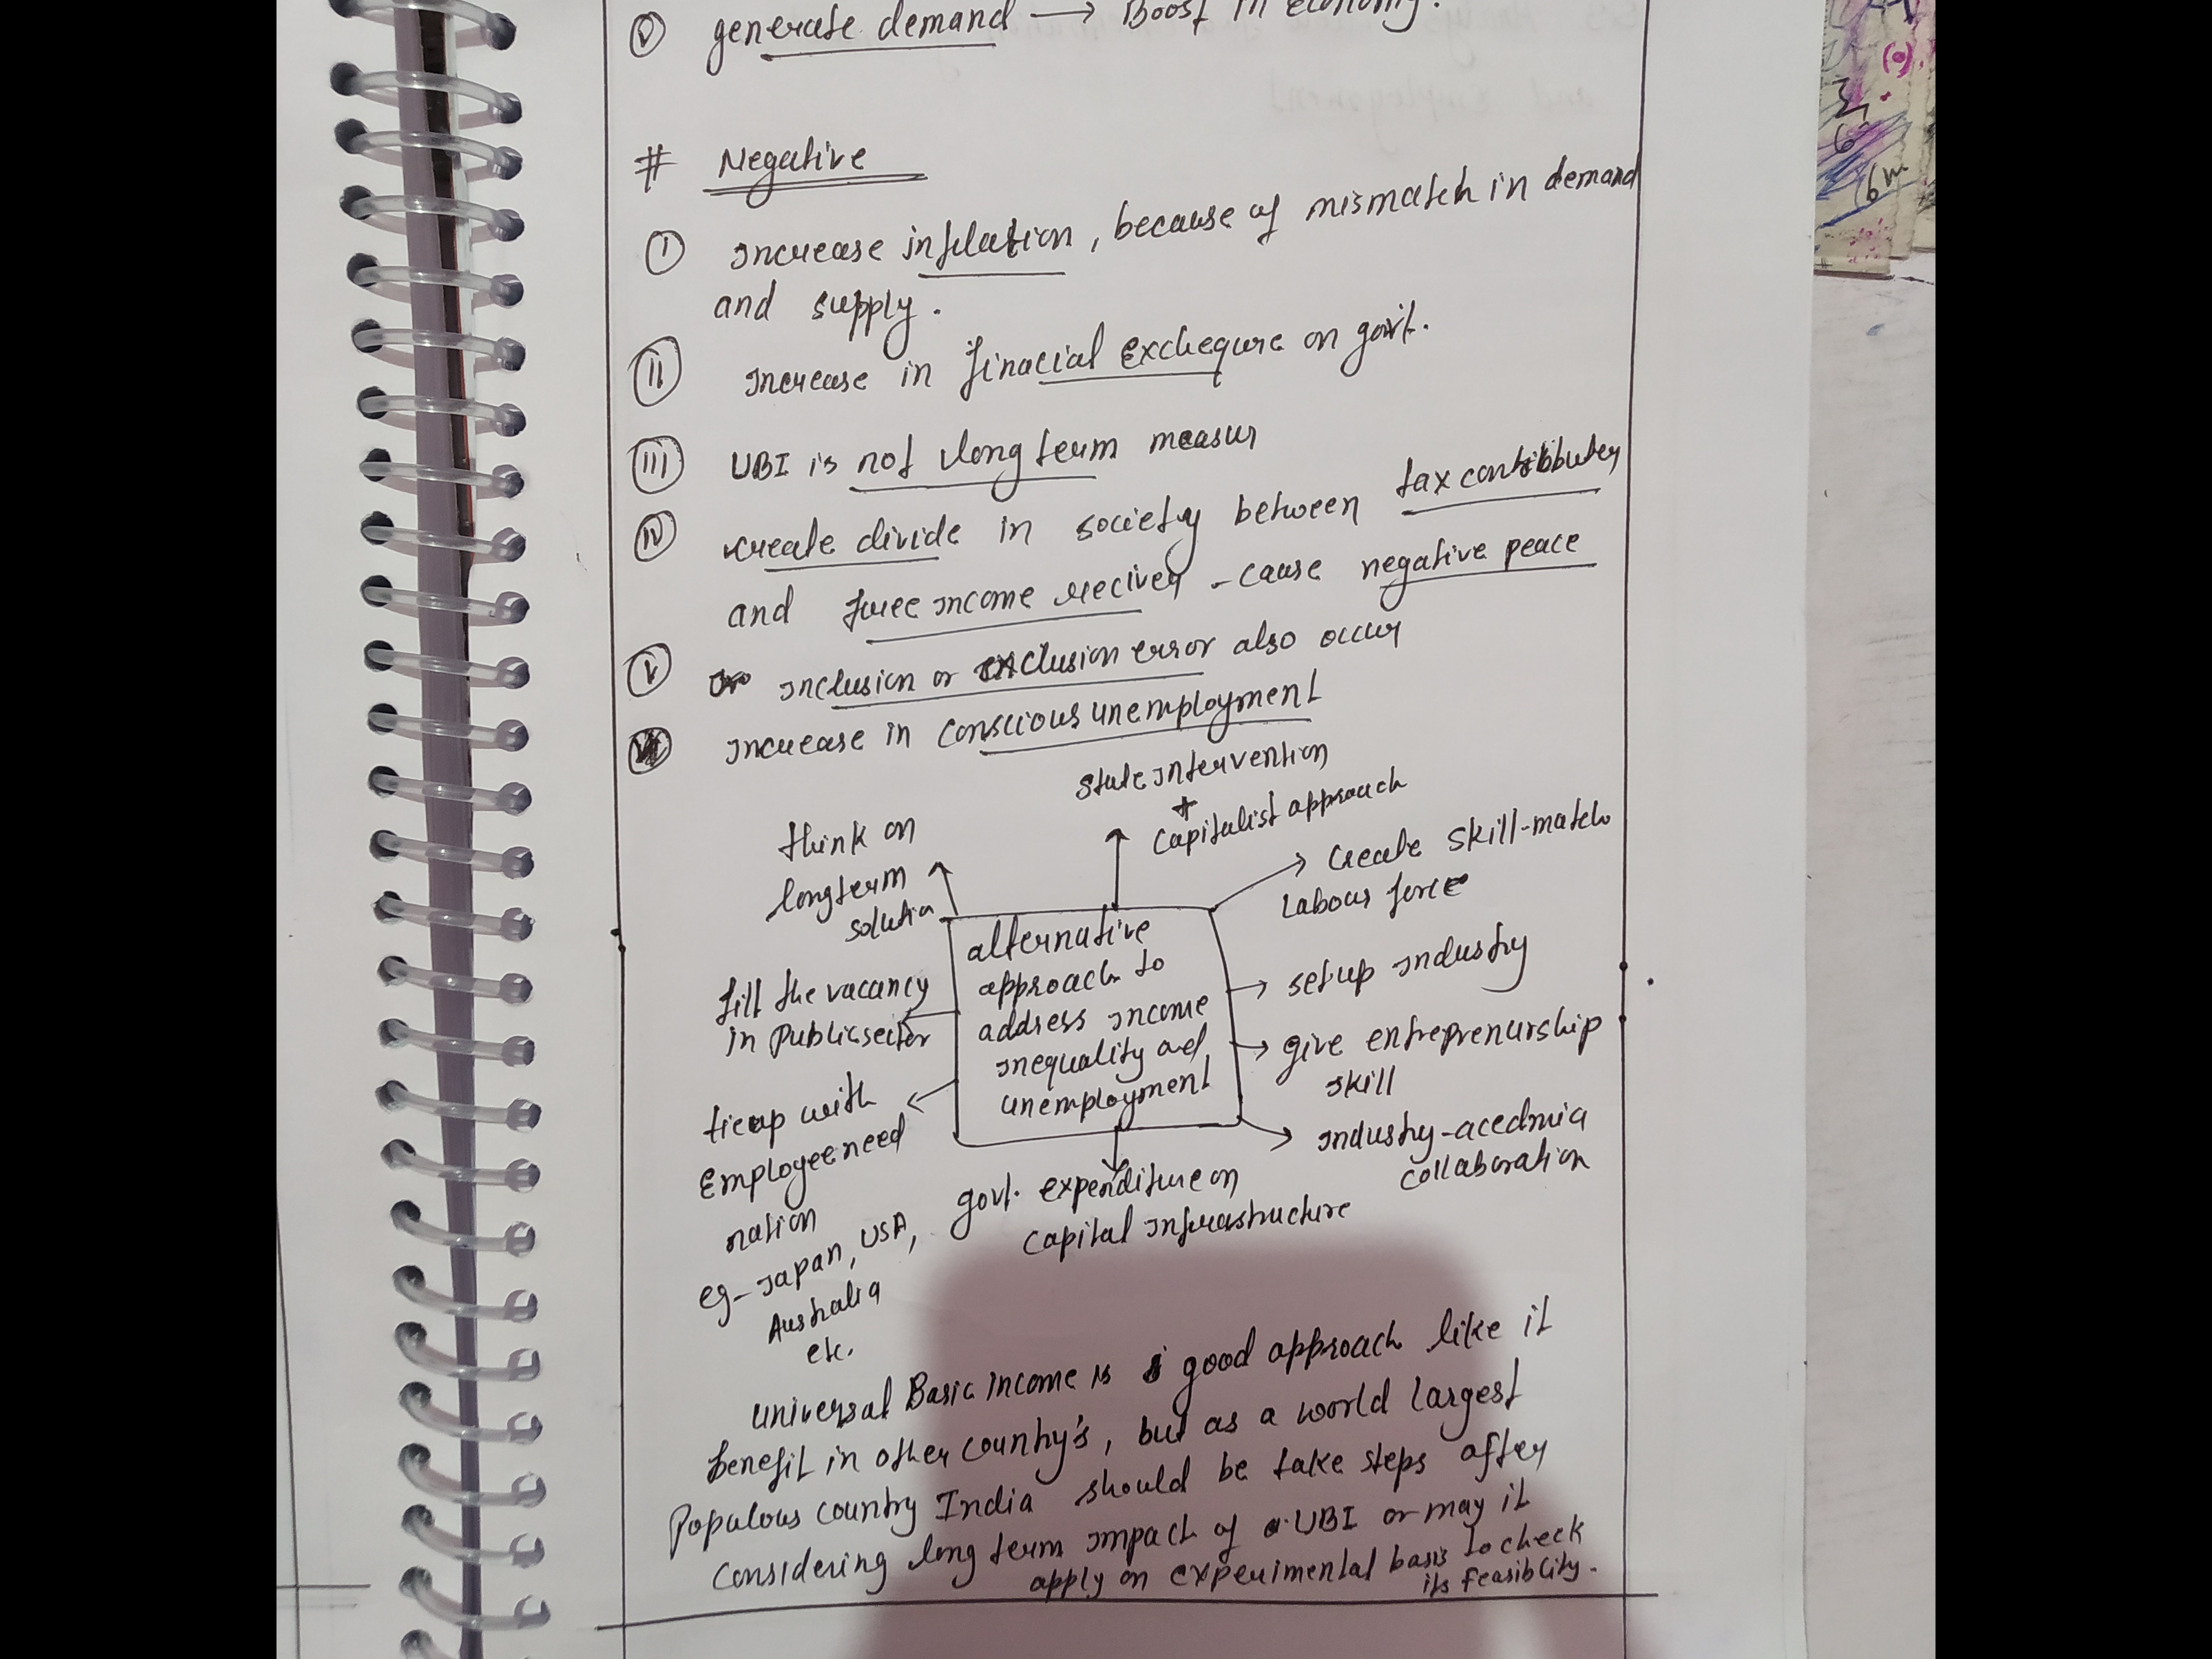 ⓥ generate demand → Boost in economy.
# Negative
Ⓘ Increase inflation, because of mismatch in demand
and supply.
ⓘⓘ Increase in finacial exchequre on govt.
ⓘⓘⓘ UBI is not long term measur
ⓘⓥ create divide in society between tax contributer
and free income reciver - cause negative peace
ⓥ Inclusion or exclusion error also occur
Increase in conscious unemployment
State Intervention
+
Capitalist approach
think on
longterm
solution
create skill-match
Labour force
alternative
approach to
address income
inequality and
unemployment
fill the vacancy
in Public sector
setup industry
give entreprenurship
skill
tieup with
Employee need
nation
eg - Japan, USA,
Australia
etc.
Industry-acedmia
collaboration
govt. expenditure on
capital infrastructure
Universal Basic income is good approach like it
benefit in other country's, but as a world largest
Populous country India should be take steps after
considering long term impact of UBI or may it
apply on experimental basis to check
its feasiblity.